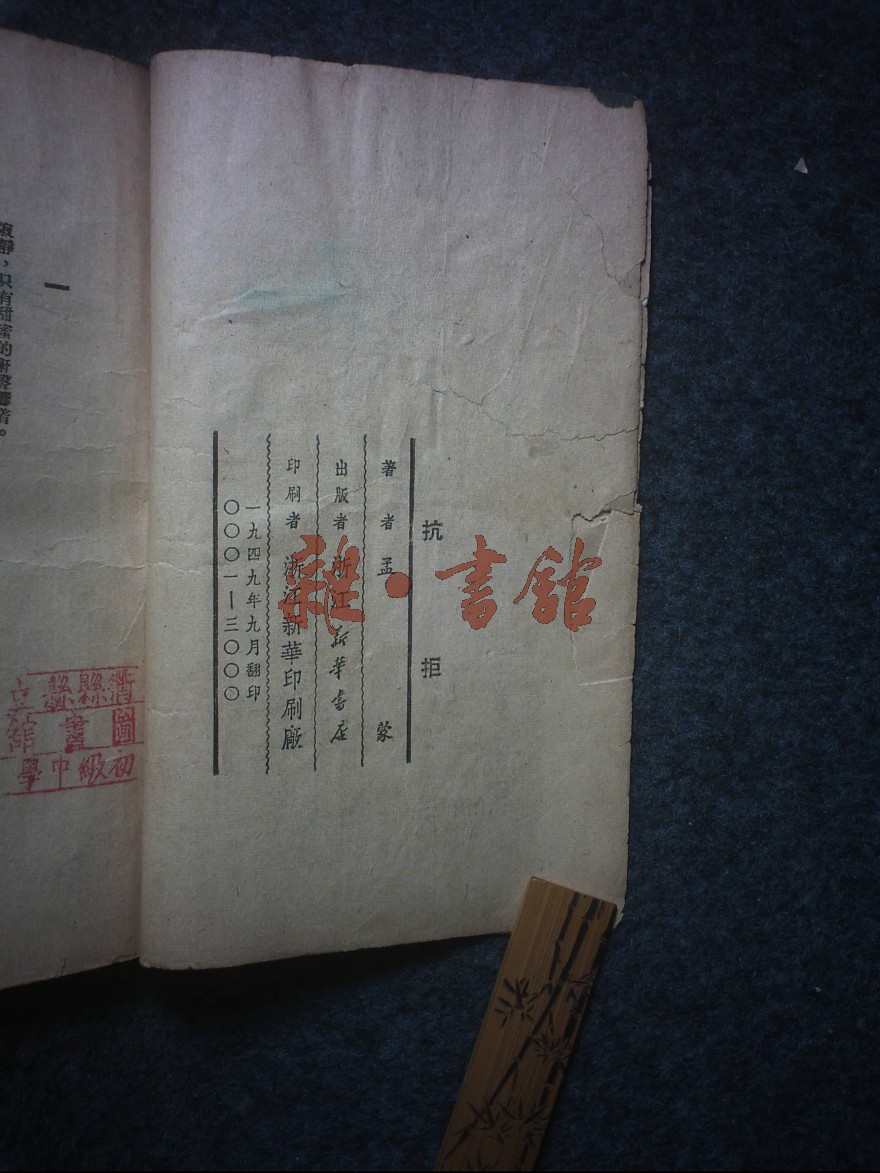 抗拒
著者 孟蒙
出版者 浙江新華書店
印刷者 浙江新華印刷廠
一九四九年九月翻印
〇〇〇一—三〇〇〇
雜·書館
一
寂靜，只有甜蜜的鼾聲響着。
縣
圖書館
初級中學